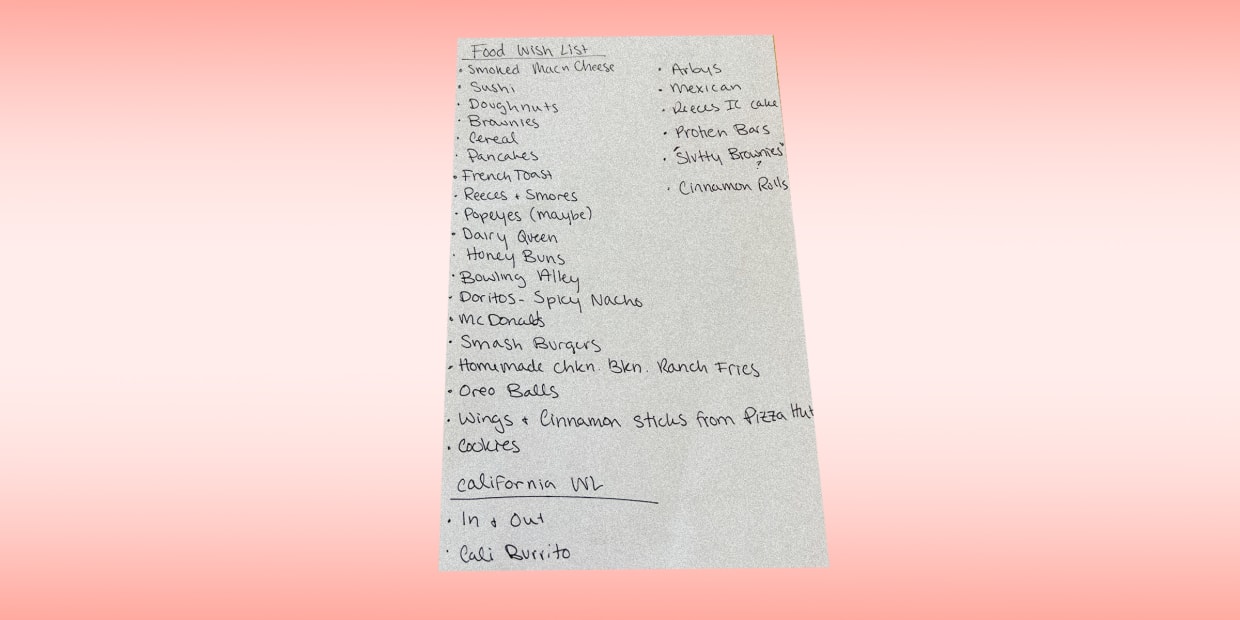 Food Wish List
• Smoked Mac n Cheese
• Sushi
• Doughnuts
• Brownies
• Cereal
• Pancakes
• French Toast
• Reeces + Smores
• Popeyes (maybe)
• Dairy Queen
• Honey Buns
• Bowling Alley
• Doritos - Spicy Nacho
• McDonalds
• Smash Burgers
• Homemade Chkn. Bkn. Ranch Fries
• Oreo Balls
• Wings + Cinnamon Sticks from Pizza Hut
• Cookies
• Arbys
• Mexican
• Reeces IC Cake
• Protien Bars
• "Slutty Brownies"
?
• Cinnamon Rolls
California WL
• In + Out
• Cali Burrito